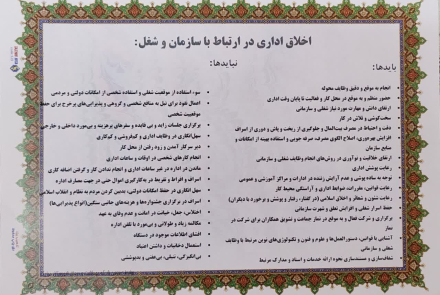 اخلاق اداری در ارتباط با سازمان و شغل:
بایدها:
انجام به موقع و دقیق وظایف محوله
حضور منظم و به موقع در محل کار و فعالیت تا پایان وقت اداری
ارتقای دانش و مهارت مورد نیاز شغلی و سازمانی
سخت‌کوشی و تلاش در کار
دقت و احتیاط در مصرف بیت‌المال و جلوگیری از ریخت و پاش و دوری از اسراف
افزایش بهره‌وری، اصلاح الگوی مصرف، صرفه جویی و استفاده بهینه از امکانات و
منابع سازمان
ارتقای خلاقیت و نوآوری در روش‌های انجام وظایف شغلی و سازمانی
رعایت پوشش اداری
توجه به ساده پوشی و عدم آرایش زننده در ادارات و مراکز آموزشی و عمومی
رعایت قوانین، مقررات، ضوابط اداری و آراستگی محیط کار
رعایت شئون و شعائر و اخلاق اسلامی (در گفتار، رفتار و پوشش و برخورد با دیگران)
حفظ اسرار شغلی و افزایش تعلق و شهرت سازمانی
برگزاری و شرکت فعال و به موقع در نماز جماعت و تشویق همکاران برای شرکت در
نماز جماعت
آشنایی با قوانین، دستور العمل‌ها و علوم و فنون و تکنولوژی‌های نوین مرتبط با وظایف
شغلی و سازمانی
شفاف‌سازی و مستندسازی نحوه ارائه خدمات و اسناد و مدارک مرتبط
نبایدها:
سوء استفاده از موقعیت شغلی و استفاده شخصی از امکانات دولتی و مردمی
اعمال نفوذ برای نیل به منافع شخصی و گروهی و پذیرایی‌های پرخرج برای حفظ
موقعیت شخصی
برگزاری جلسات زاید و بی فایده و سفرهای پرهزینه و بی‌مورد داخلی و خارجی
سهل‌انگاری در وظایف اداری و کم‌فروشی و کم‌کاری
دیر سرکار آمدن و زود رفتن از محل کار
انجام کارهای شخصی در اوقات و ساعات اداری
ماندن در اداره در غیر ساعات اداری و انجام ندادن کار و گرفتن اضافه کاری
اسراف و افراط و تفریط در به‌کارگیری اموال حتی در جهت مصرف اداره
سهل انگاری در حفظ امکانات دولتی، بدبین کردن مردم به نظام و انقلاب اسلامی
اسراف در برگزاری جشنواره‌ها و هزینه‌های جانبی سنگین(انواع پذیرایی‌ها)
اختلاس، جعل، خیانت در امانت و عدم وفای به عهد
مکالمه زیاد و طولانی و بی‌مورد با تلفن اداره
افشای اطلاعات موجود در دستگاه
استعمال دخانیات و داشتن اعتیاد
بی‌انگیزگی، تنبلی، بی‌عفتی و بدپوششی